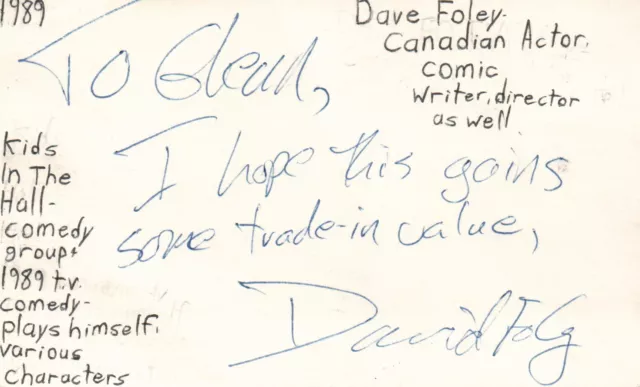 1989
Dave Foley-
Canadian Actor,
comic
writer, director
as well
To Glenn,
I hope this gains
some trade-in value,
David Foley
Kids
In The
Hall-
comedy
group+
1989 t.v.
comedy-
plays himself,
various
characters